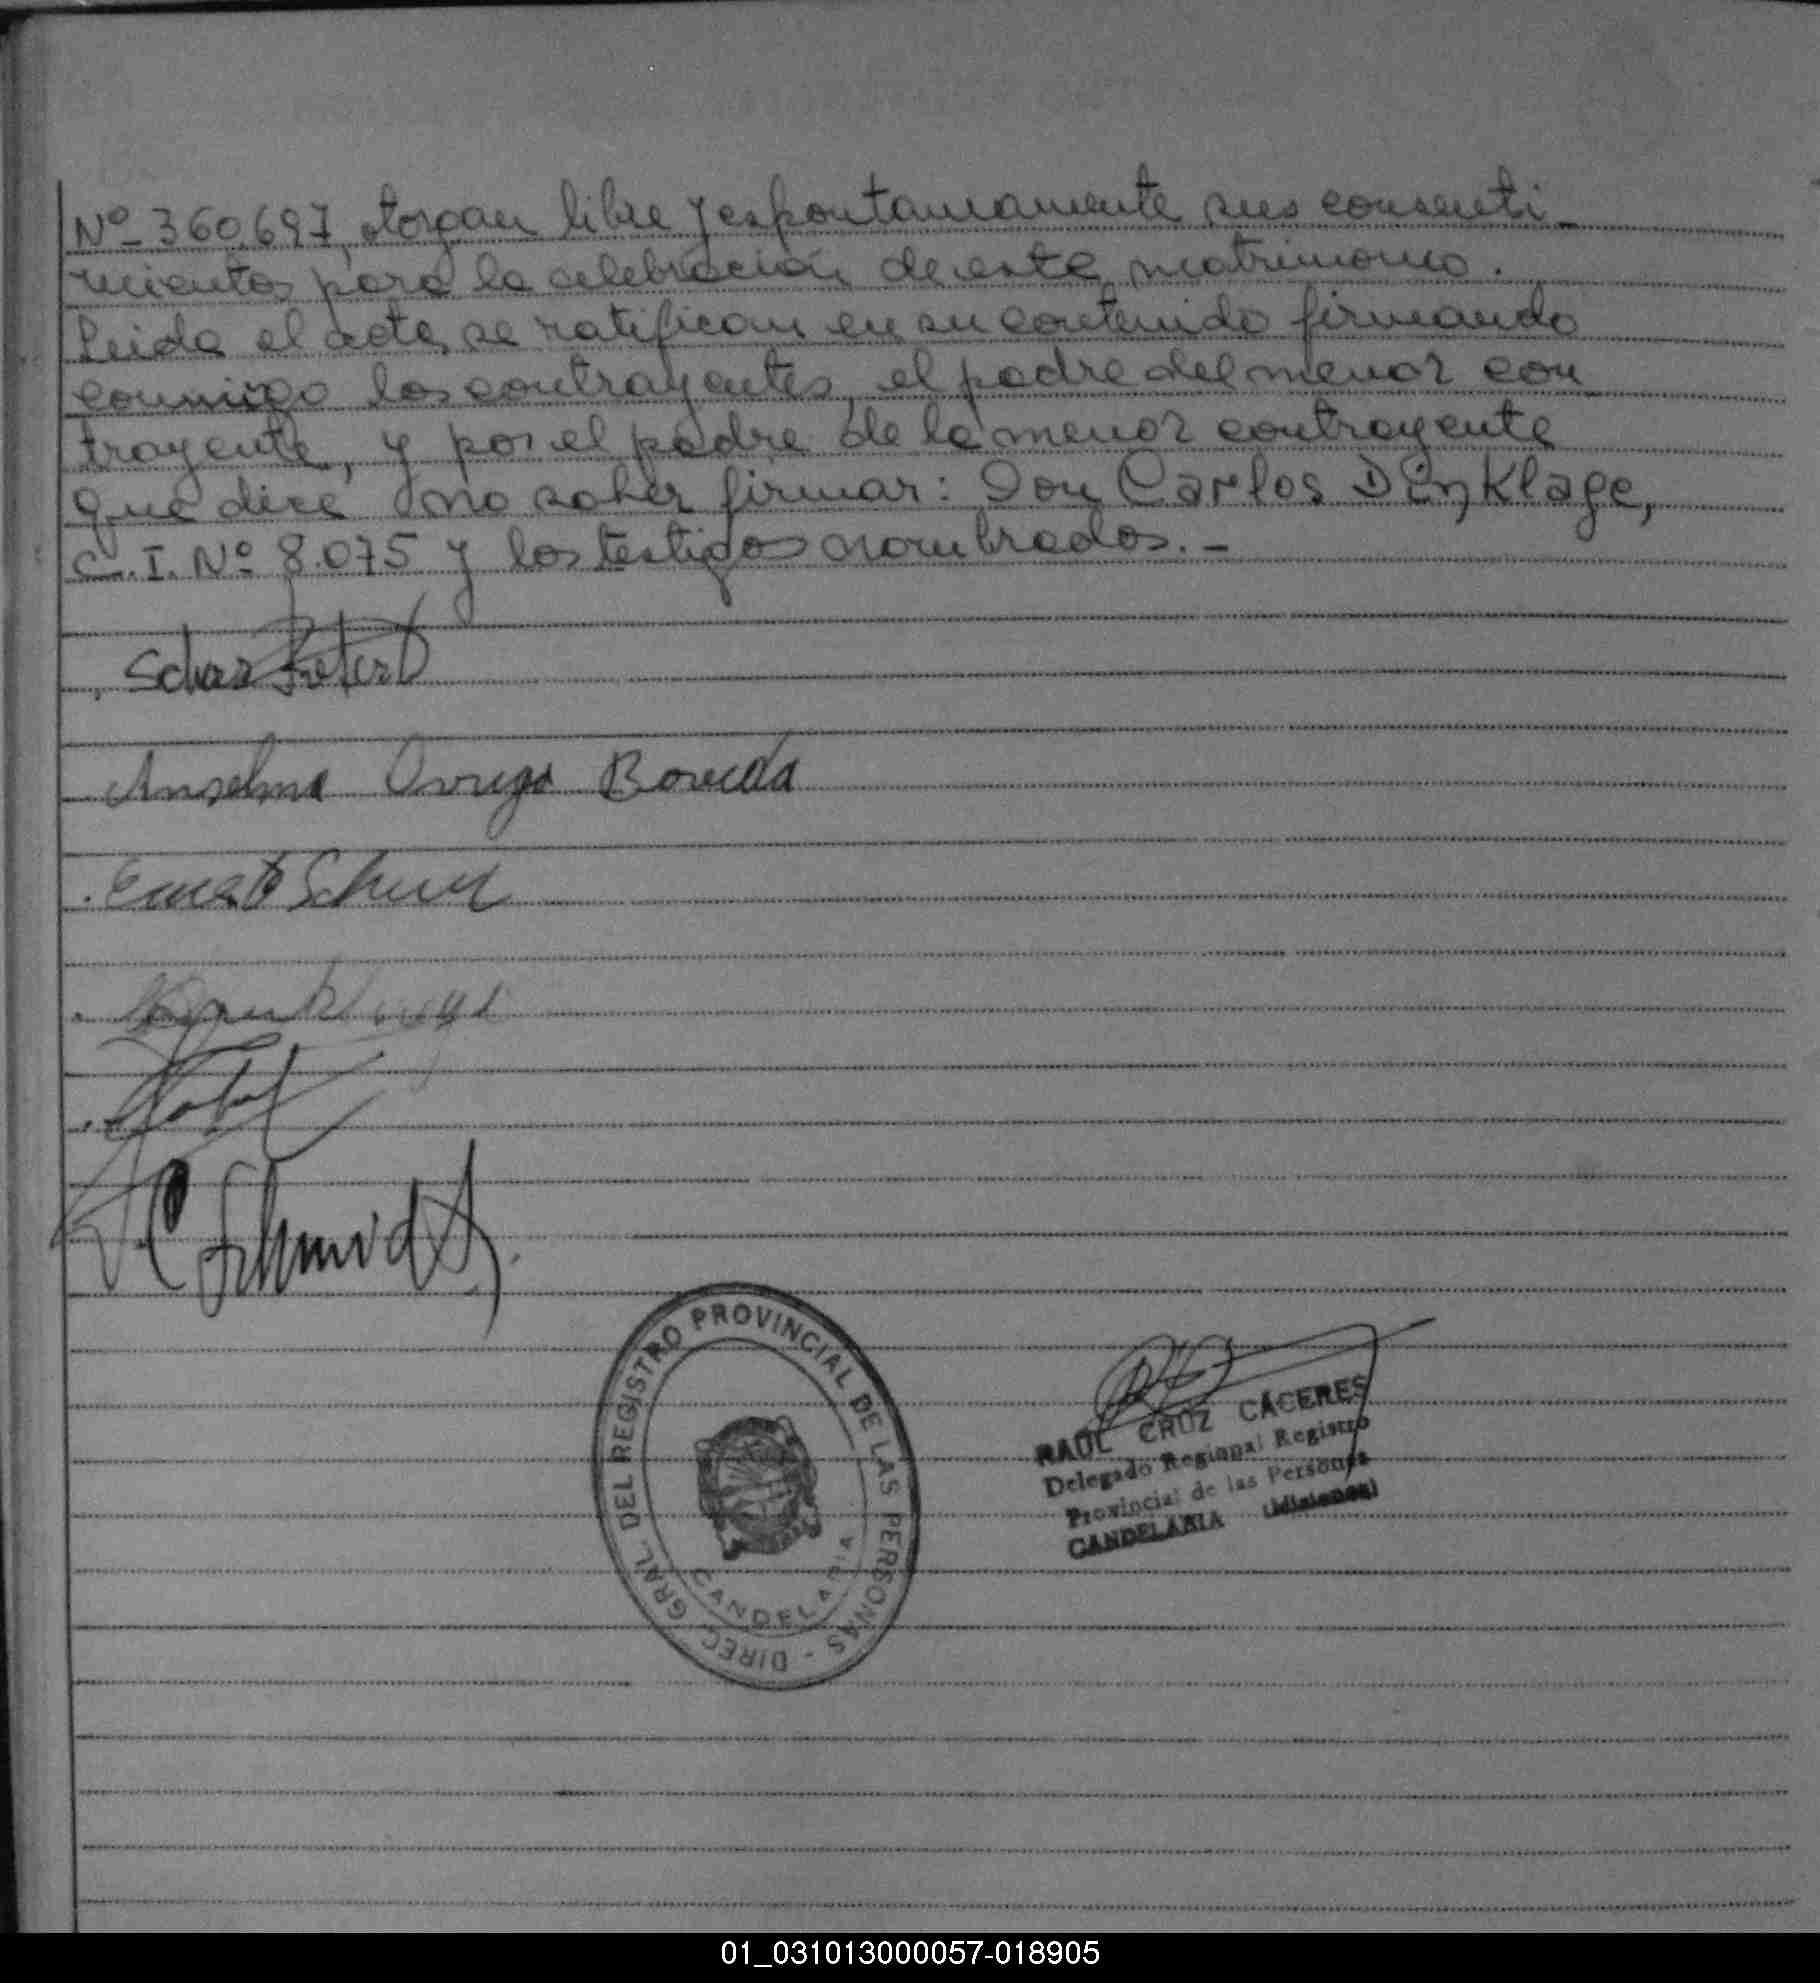 Nº 360.697, otorgan libre y espontaneamente sus consenti-
mientos para la celebración de este matrimonio.
Leida el acta, se ratifican en su contenido firmando
conmigo los contrayentes, el padre del menor con
trayente, y por el padre de la menor contrayente
que dice no saber firmar: Don Carlos Dinklage,
C.I. Nº 8.075 y los testigos nombrados.-
Anselma
Ernesto
C Schmidt
DIREC. GRAL. DEL REGISTRO PROVINCIAL DE LAS PERSONAS -
CANDELARIA
RAUL CRUZ CÁCERES
Delegado Regional Registro
Provincial de las Personas
CANDELARIA (Misiones)
01_031013000057-018905